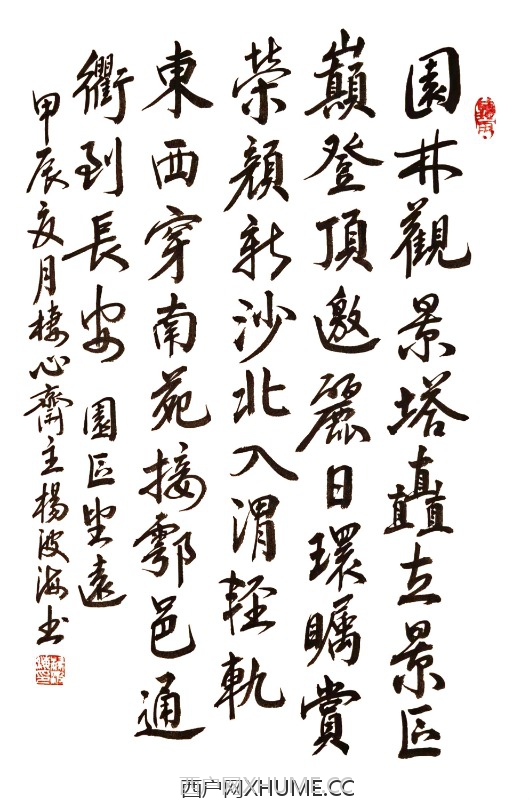 園林觀景塔矗立景区
巔登頂邀麗日環矚賞
榮顏新沙北入渭輕軌
東西穿南苑接鄠邑通
衢到長安 園区望遠
甲辰亥月棲心齋主楊波海书
西户网XHUME.CC